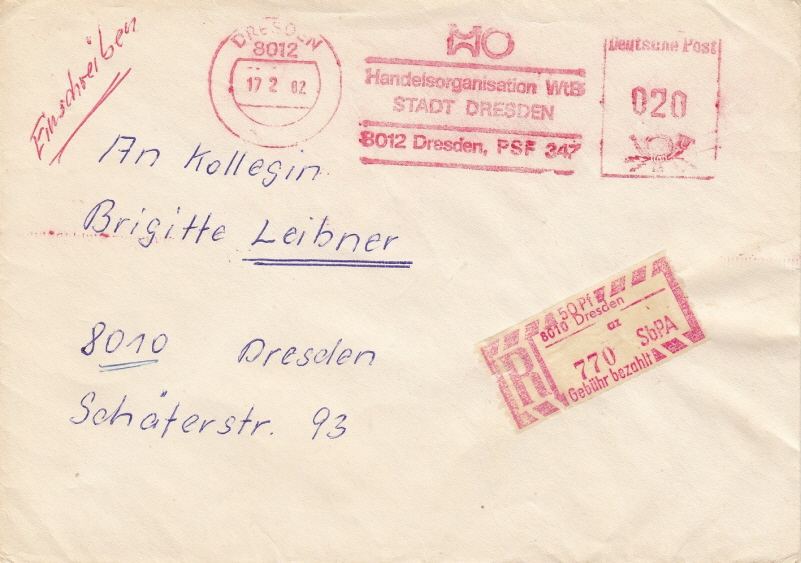 Einschreiben
DRESDEN
8012
17 2 82
HO
Handelsorganisation WtB
STADT DRESDEN
8012 Dresden, PSF 347
Deutsche Post
020
An Kollegin
Brigitte Leibner
8010 Dresden
Schäferstr. 93
50 Pf
8010 Dresden
az
R
770 SbPA
Gebühr bezahlt